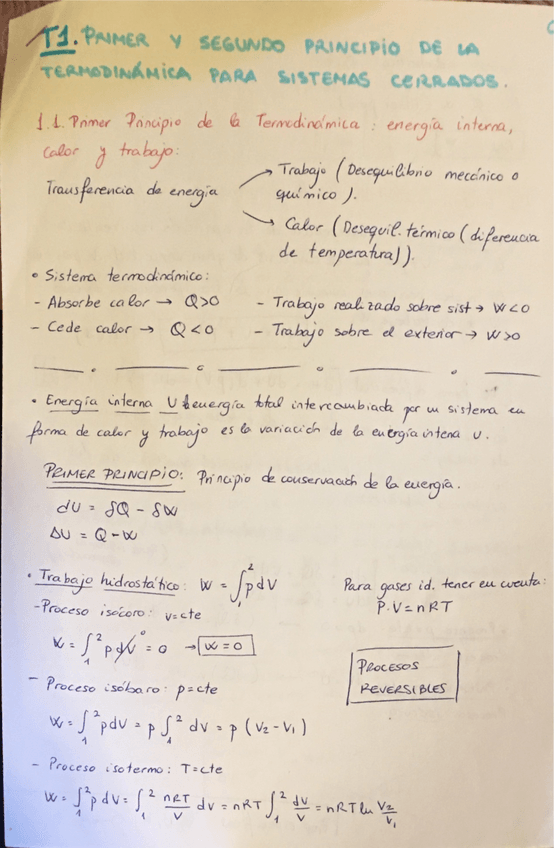 T1. PRIMER Y SEGUNDO PRINCIPIO DE LA
TERMODINÁMICA PARA SISTEMAS CERRADOS.
1.1. Primer Principio de la Termodinámica: energía interna,
calor y trabajo:
Transferencia de energía
→ Trabajo (Desequilibrio mecánico o
químico).
→ Calor (Desequil. térmico (diferencia
de temperatura)).
• Sistema termodinámico:
- Absorbe calor → Q>0 - Trabajo realizado sobre sist → W<0
- Cede calor → Q<0 - Trabajo sobre el exterior → W>0
• Energía interna U energía total intercambiada por un sistema en
forma de calor y trabajo es la variación de la energía intena U.
PRIMER PRINCIPIO: Principio de conservación de la energía.
dU = δQ - δW
ΔU = Q-W
• Trabajo hidrostático: W = ∫₁² p dV Para gases id. tener en cuenta:
P·V = nRT
- Proceso isócoro: v=cte
W = ∫₁² p dV⁰ = 0 → W=0
PROCESOS
REVERSIBLES
- Proceso isóbaro: p=cte
W = ∫₁² pdV = p ∫₁² dV = p (V₂-V₁)
- Proceso isotermo: T=cte
W = ∫₁² p dV = ∫₁² nRT/V dV = nRT ∫₁² dV/V = nRT ln V₂/V₁